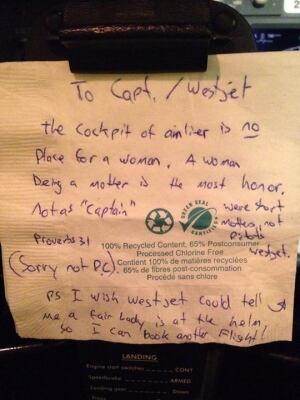 To Capt. / Westjet
the cockpit of airliner is no
Place for a woman. A woman
being a mother is the most honor.
Not as "captain"
were short
mothers, not
pilots
westjet.
Proverbs 31
(Sorry not P.C.)
GREEN SEAL
CERTIFIED
100% Recycled Content, 65% Postconsumer
Processed Chlorine Free
Content 100% de matières recyclées
65% de fibres post-consommation
Procédé sans chlore
PS I wish Westjet could tell
me a fair lady is at the helm
so I can book another Flight!
LANDING
Engine start switches CONT
Speedbrake ARMED
Landing gear Down